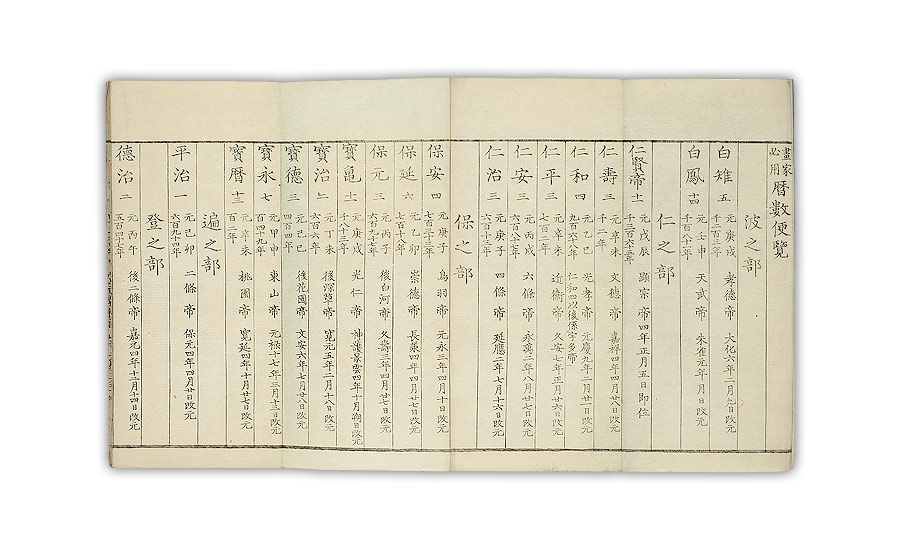 畫家必用 暦數便覽
波之部
白雉 五 元庚戌 千百二三年 孝德帝 大化六年二月九日改元
白鳳 十四 元壬申 千百八十年 天武帝 朱雀元年 月 日改元
仁之部
仁賢帝 十一 元戊辰 千三百六十三年 顯宗帝 四年正月五日即位
仁壽 三 元辛未 千二年 文德帝 嘉祥四年四月廿八日改元
仁和 四 元乙巳 九百六十年 光孝帝 元慶九年二月廿一日改元 仁和四以後係宇多帝
仁平 三 元辛未 七百二年 近衛帝 久安七年正月廿六日改元
仁安 三 元丙戌 六百八十七年 六條帝 永萬二年八月廿七日改元
仁治 三 元庚子 六百十三年 四條帝 延應二年七月十六日改元
保之部
保安 四 元庚子 七百三十三年 鳥羽帝 元永三年四月十日改元
保延 六 元乙卯 七百十八年 崇德帝 長承四年四月廿七日改元
保元 三 元丙子 六百九十七年 後白河帝 久壽三年四月廿七日改元
寶龜 十一 元庚戌 千八十三年 光仁帝 神護景雲四年十月朔日改元
寶治 二 元丁未 六百六年 後深草帝 寛元五年二月十八日改元
寶德 三 元己巳 四百四年 後花園帝 文安六年七月廿八日改元
寶永 七 元甲申 百四十九年 東山帝 元祿十七年三月十三日改元
寶暦 十三 元辛未 百二年 桃園帝 寛延四年十月廿七日改元
遍之部
平治 一 元己卯 六百九十四年 二條帝 保元四年四月廿日改元
登之部
德治 二 元丙午 五百四十七年 後二條帝 嘉元四年十二月十四日改元